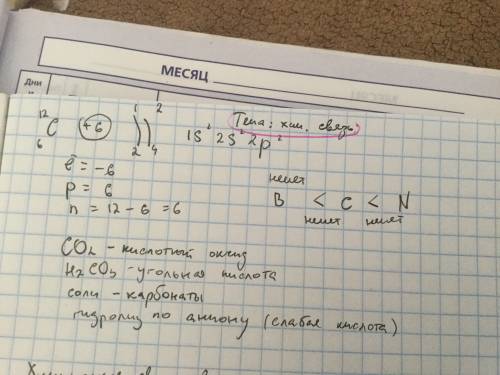 МЕСЯЦ
ДНИ
Тема: хим. связь
1 2
12 C 6 +6 )) 2 4 1s² 2s² 2p²
ē = -6
p = 6
n = 12 - 6 = 6
немет
B < C < N
немет немет
CO₂ - кислотный оксид
H₂CO₃ - угольная кислота
соли - карбонаты
гидролиз по аниону (слабая кислота)